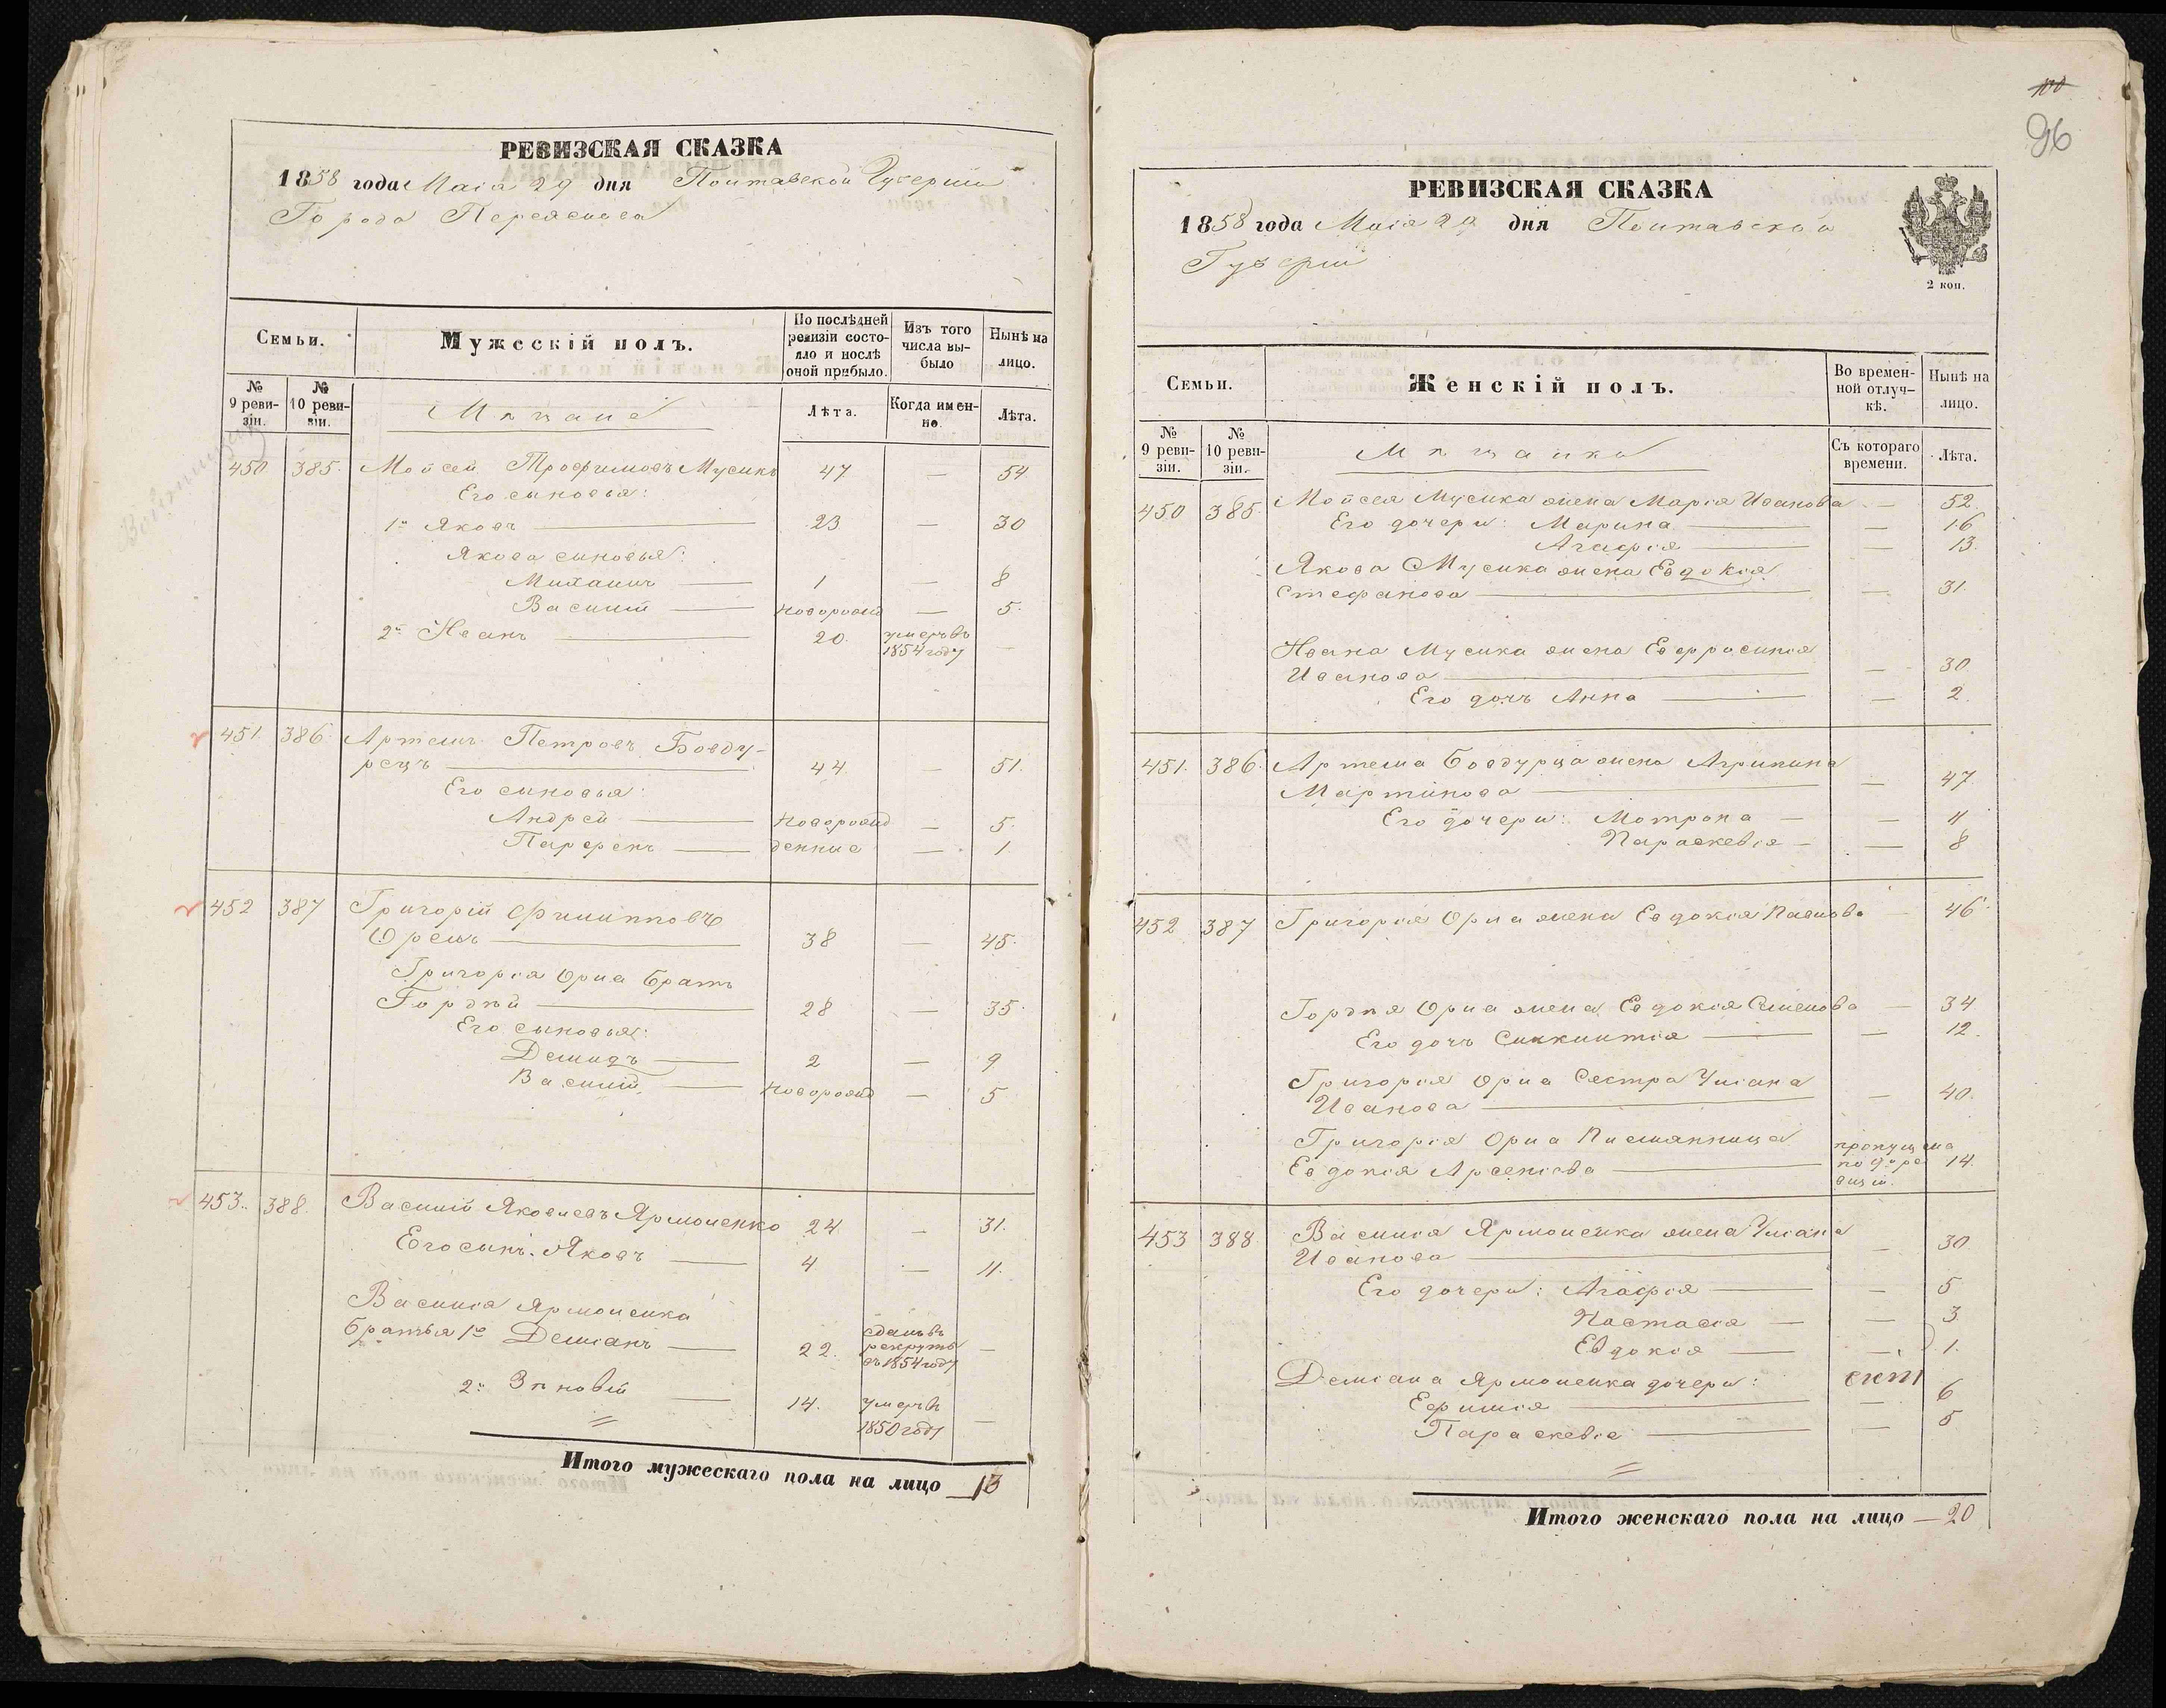 РЕВИЗСКАЯ СКАЗКА
1858 года Маія 29 дня Полтавской Губерніи
Города Переяслава
Семьи.
Мужескій полъ.
По послѣдней ревизіи состояло и послѣ оной прибыло.
Изъ того числа выбыло
Нынѣ на лицо.
№ 9 ревизіи.
№ 10 ревизіи.
Мѣщане
Лѣта.
Когда именно.
Лѣта.
450 385. Мойсей Трофимовъ Мусикъ 47 — 54
Его сыновья:
1й Яковъ 23 — 30
Якова сыновья:
Михаилъ 1 — 8
Василій новорожд — 5.
2й Иванъ 20. умеръ въ 1854 году —
451. 386 Артемъ Петровъ Бовду-
рецъ 44 — 51.
Его сыновья:
Андрей новорожд — 5.
Парфенъ денные — 1
452 387 Григорій Филипповъ
Орелъ 38 — 45.
Григорія Орла братъ
Гордѣй 28 — 35.
Его сыновья:
Демидъ 2 — 9
Василій новорожд — 5
453. 388. Василій Яковлевъ Ярмоленко 24 — 31.
Его сынъ: Яковъ 4 — 11.
Василія Ярмоленка
братья 1й Деміанъ 22. сданъ въ рекруты въ 1854 году —
2й Зѣновій 14. умеръ въ 1850 году —
Итого мужескаго пола на лицо 13
100
96
РЕВИЗСКАЯ СКАЗКА
1858 года Маія 29 дня Полтавской
Губерніи
2 коп.
Семьи.
Женскій полъ.
Во временной отлучкѣ.
Нынѣ на лицо.
№ 9 ревизіи.
№ 10 ревизіи.
Мѣщанки
Съ котораго времени.
Лѣта.
450 385. Мойсея Мусика жена Марія Иванова — 52.
Его дочери: Марина — 16
Агафія — 13.
Якова Мусика жена Евдокія
Стефанова — 31.
Ивана Мусика жена Евфросинія
Иванова — 30
Его дочъ Анна — 2
451. 386. Артема Бовдурца жена Агрипина
Мартинова — 47
Его дочери: Мотрона — 11
Параскевія — 8
452 387 Григорія Орла жена Евдокія Павлова — 46
Гордѣя Орла жена Евдокія Семенова — 34
Его дочъ Синклитія — 12.
Григорія Орла Сестра Уліана
Иванова — 40.
Григорія Орла Племянница
Евдокія Арсеніева пропущена по 9й ревизіи. 14.
453 388 Василія Ярмоленка жена Уліана
Иванова — 30
Его дочери: Агафія — 5
Настасія — 3.
Евдокія — 1.
Деміана Ярмоленка дочери:
Ефимія — 6
Параскевіе — 5
Итого женскаго пола на лицо — 20